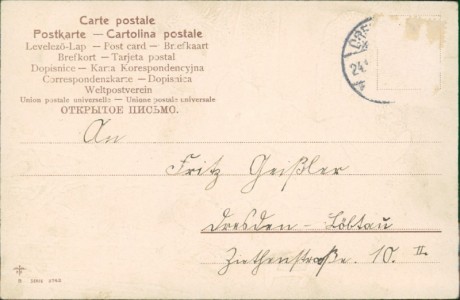 Carte postale
Postkarte — Cartolina postale
Levelező-Lap — Post card — Brefkaart
Brefkort — Tarjeta postal
Dopisnice — Karta Korespondencyjna
Correspondenzkarte — Dopisnica
Weltpostverein
Union postale universelle — Unione postale universale
ОТКРЫТОЕ ПИСЬМО.
24.
An
Fritz Geißler
Dresden - Löbtau
Ziethenstraße. 10. II.